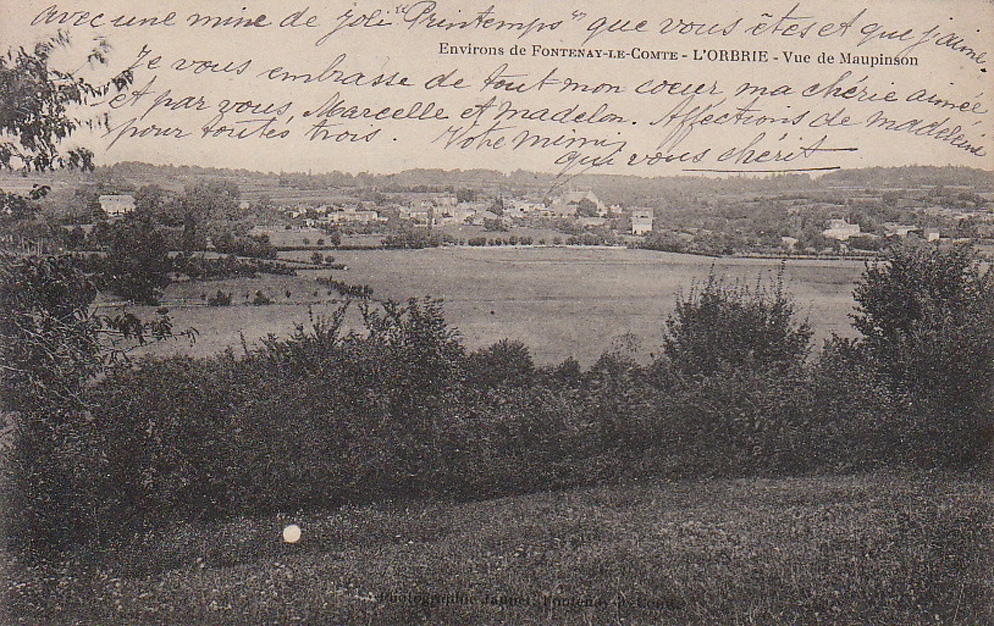 avec une mine de joli "Printemps" que vous êtes et que j'aime.
Environs de FONTENAY-LE-COMTE - L'ORBRIE - Vue de Maupinson
Je vous embrasse de tout mon coeur ma chérie aimée
et par vous, Marcelle et Madelon. Afféctions de madeleine
pour toutes trois. Votre mimi
qui vous chérit
Photographie Fontenay-le-Comte